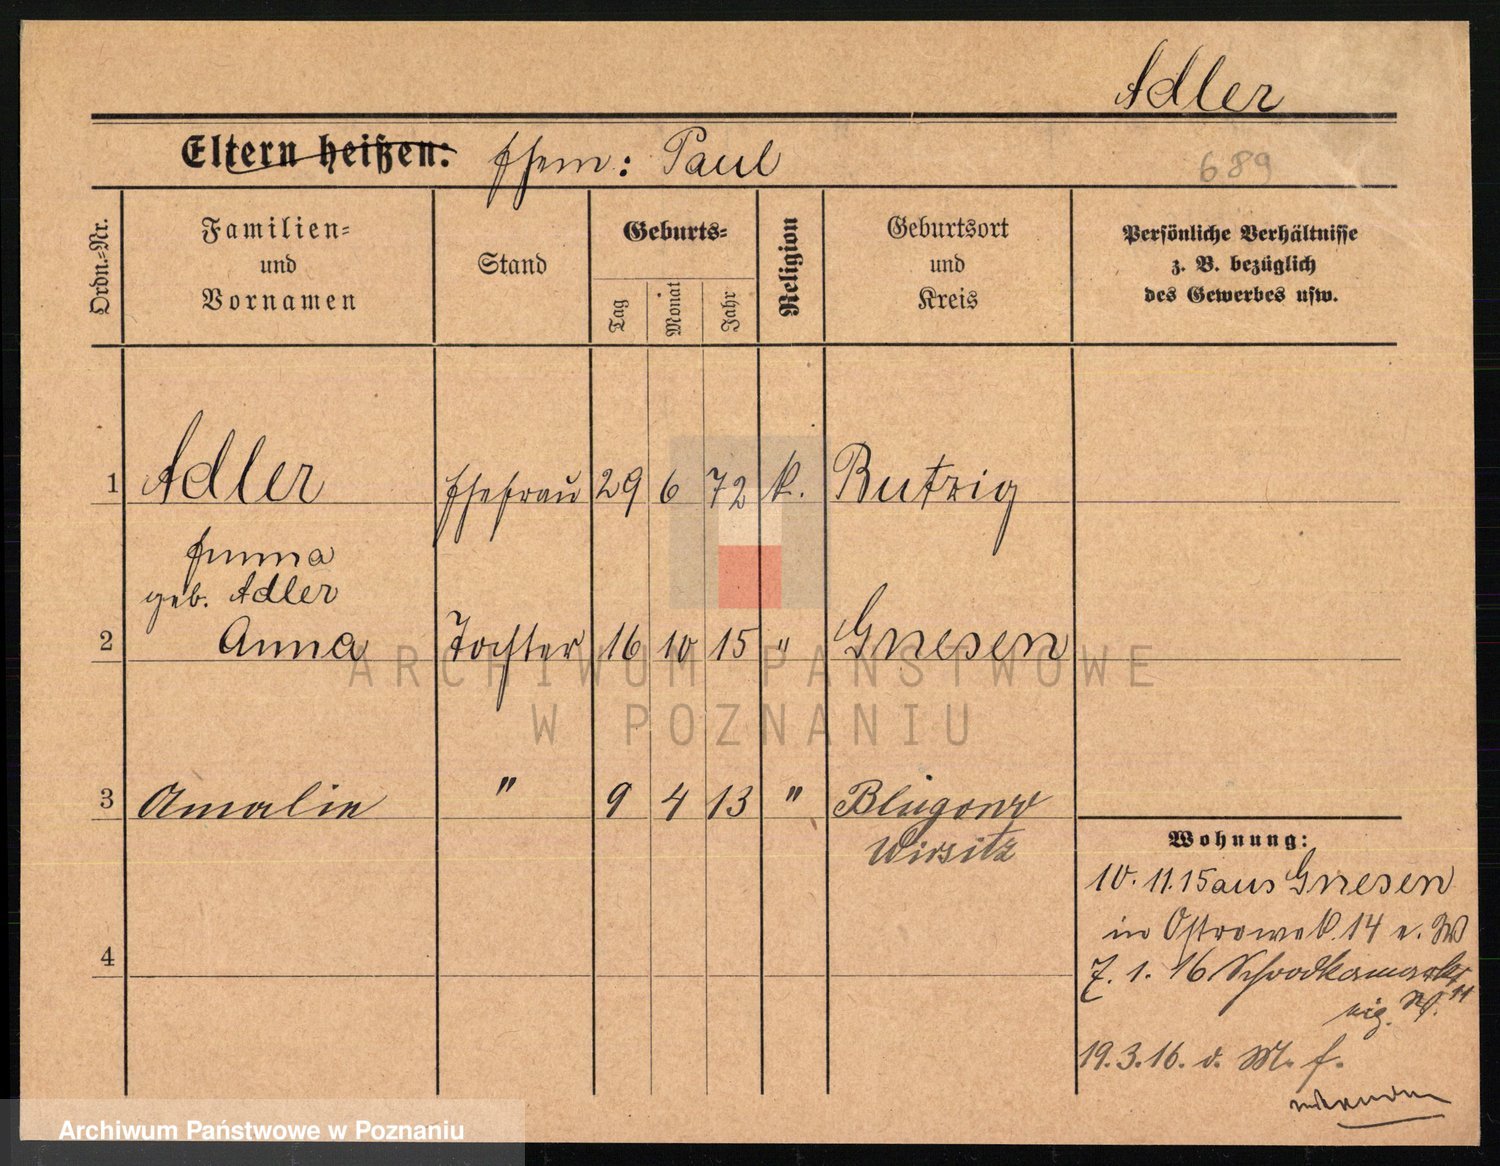 Adler
Eltern heißen: Ehem: Paul
689
Ordn.-Nr.
Familien-
und
Vornamen
Stand
Geburts-
Tag
Monat
Jahr
Religion
Geburtsort
und
Kreis
Persönliche Verhältnisse
z. B. bezüglich
des Gewerbes usw.
1 Adler Ehefrau 29 6 72 k. Rutzig
Emma
geb. Adler
2 Anna Tochter 16 10 15 " Gnesen
3 Amalie " 9 4 13 " Blugowo
Wirsitz
4
Wohnung:
10.11.15 aus Gnesen
in Ostrowek 14 e. W
7. 1. 16 Schrodkamarkt
11
19.3.16. v. M. f.
ARCHIWUM PAŃSTWOWE
W POZNANIU
Archiwum Państwowe w Poznaniu